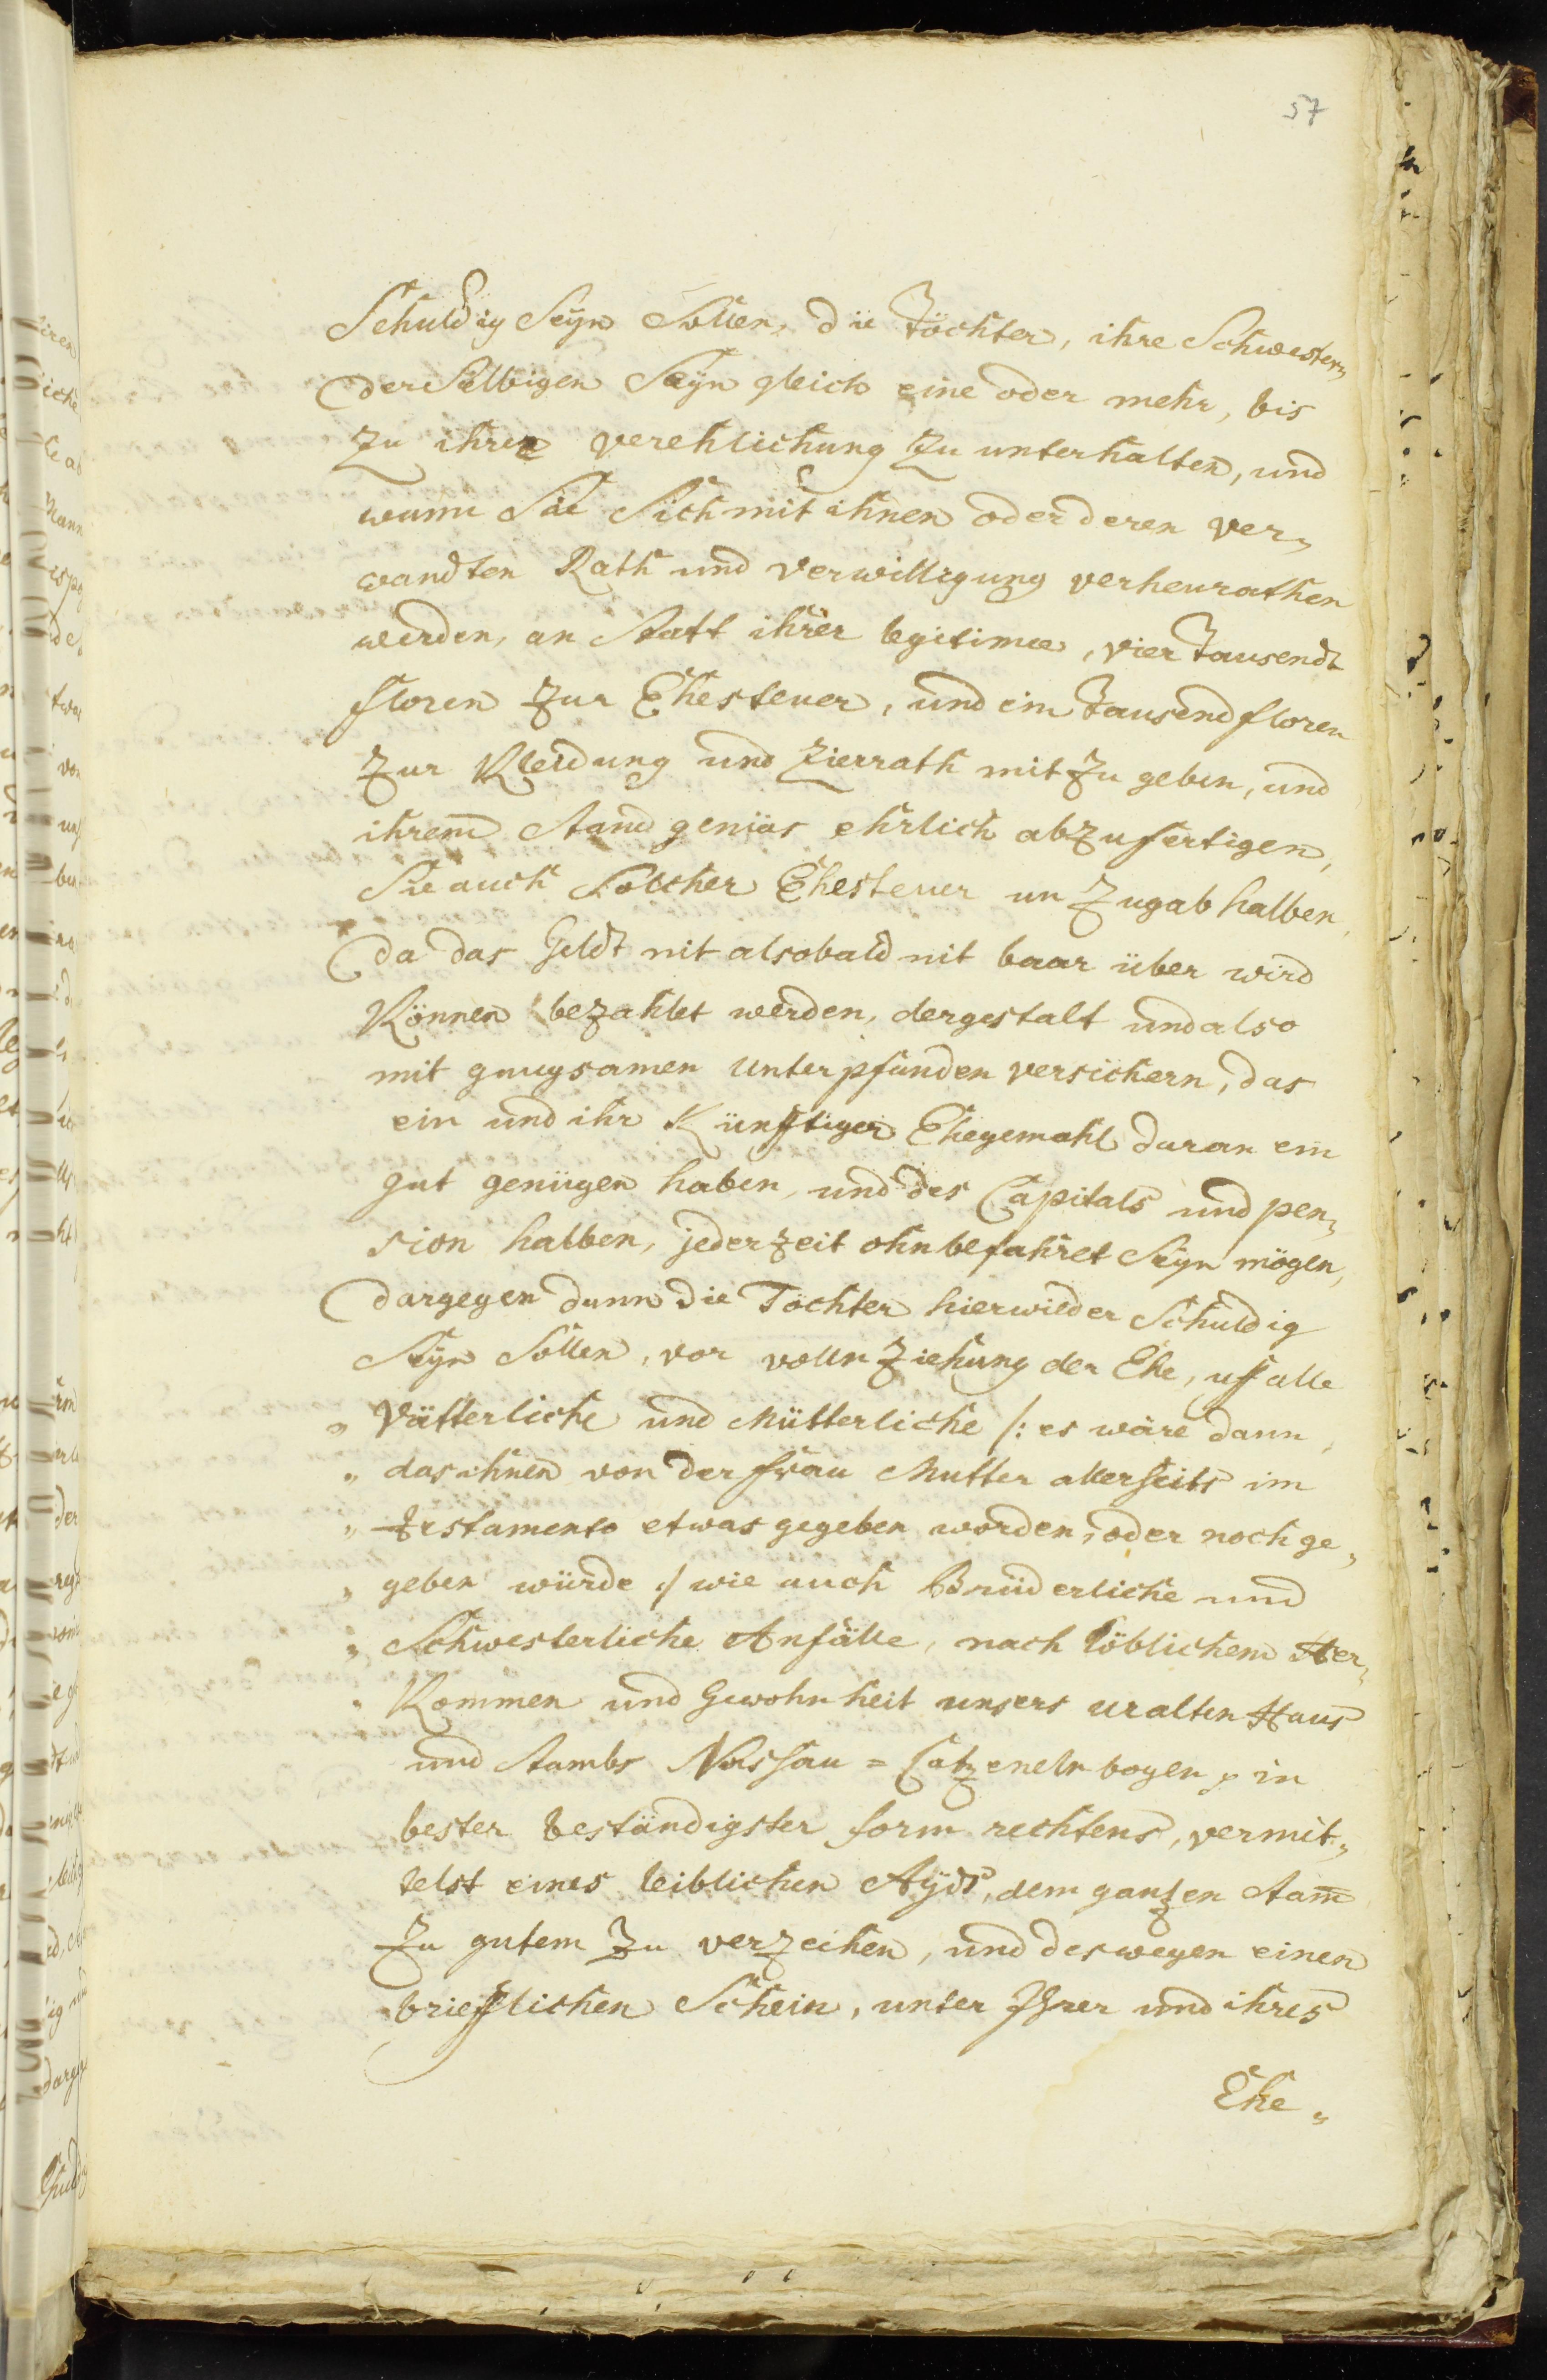 57
Schuldig Seyn Sollen, die Töchter, ihre Schwestern,
derSelbigen Seyn gleich eine oder mehr, bis
zu ihrer verehlichung zu unterhalten, und
wann Sie Sich mit ihnen oder deren ver„
wandten Rath und verwilligung verheurathen
werden, an statt ihrer legitimæ, vier Tausendt
floren zur Ehesteuer, und ein Tausend floren
zur Kleidung und Zierrath mitzu geben, und
ihrem stand gemäs ehrlich abzufertigen,
Sie auch Solcher Ehesteuer un Zugab halben,
da das Geldt nit alsobald mit baar über wird
Können bezahlet werden, dergestalt und also
mit gnugsamen Unterpfanden versichern, das
ein und ihr Künfftiger Ehegemahl daran ein
gut genügen haben, und des Capitals und pen„
sion halben, jederzeit ohnbefahret Seyn mögen,
dargegen dann die Töchter hierwieder Schuldig
Seyn Sollen, vor vollnziehung der Ehe, uff alle
„ Vätterliche und Mütterliche /: es wäre dann,
„ das ihnen von der frau Mutter allerseits im
„ testamento etwas gegeben worden, oder noch ge„
„ geben würde :/ wie auch Brüderliche und
„ Schwesterliche Anfälle, nach löblichem Her„
„ Kommen und Gewohnheit unsers uralten Haus
und stambs Nassau = Catzenelnbogen, in
bester beständigster form rechtens, vermit„
telst eines leiblichen Aÿds, dem gantzen stam̄
zu gutem zu verzeihen, und deswegen einen
briefflichen Schein, unter Ihrer und ihres
Ehe„